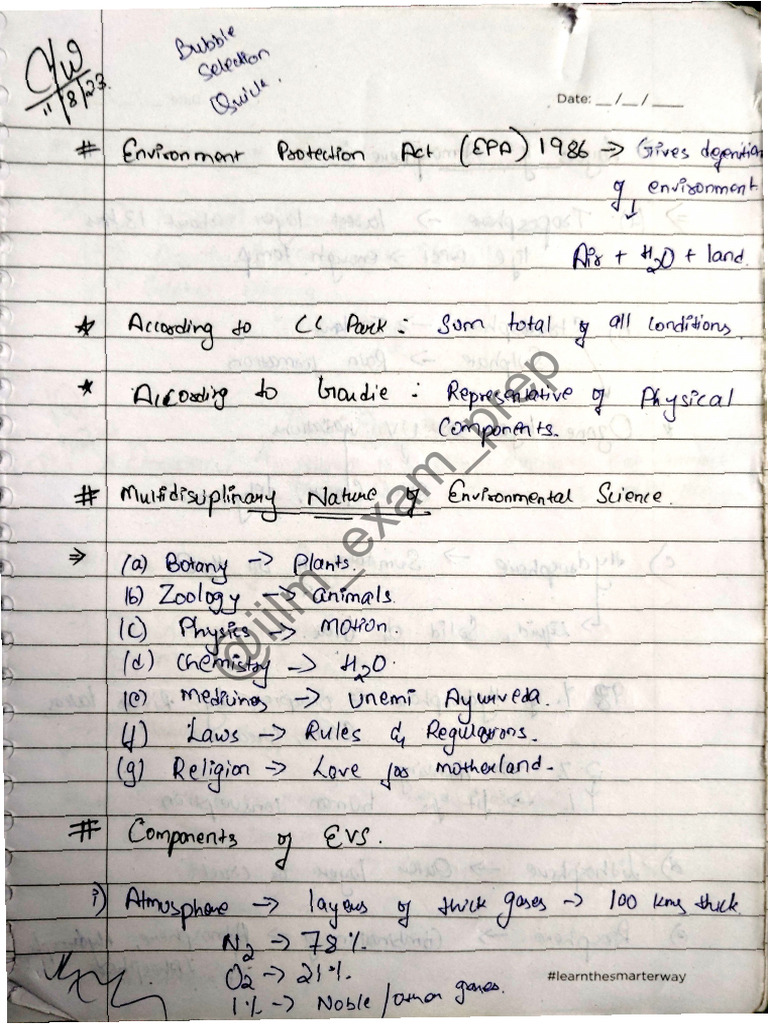 C/W
11/8/23
Bubble
Selection
Quick.
Date: __/__/____
# Environment Protection Act (EPA) 1986 → Gives defenition
of environment
↓
Air + H2O + land.
* According to CC Park : Sum total of all conditions.
* According to Goudie : Representative of Physical
Components.
# Multidisiplinary Nature of Environmental Science.
⇒ (a) Botany → Plants.
(b) Zoology → animals.
(c) Physics → Motion.
(d) Chemistry → H2O.
(e) Medicines → Ayurveda.
(f) Laws → Rules & Regulations.
(g) Religion → Love for motherland.
# Components of EVS.
i) Atmosphere → layers of thick gases → 100 kms thick.
N2 → 78%.
O2 → 21%.
1% → Noble / other gases.
#learnthesmarterway
@ijlm_exam_prep